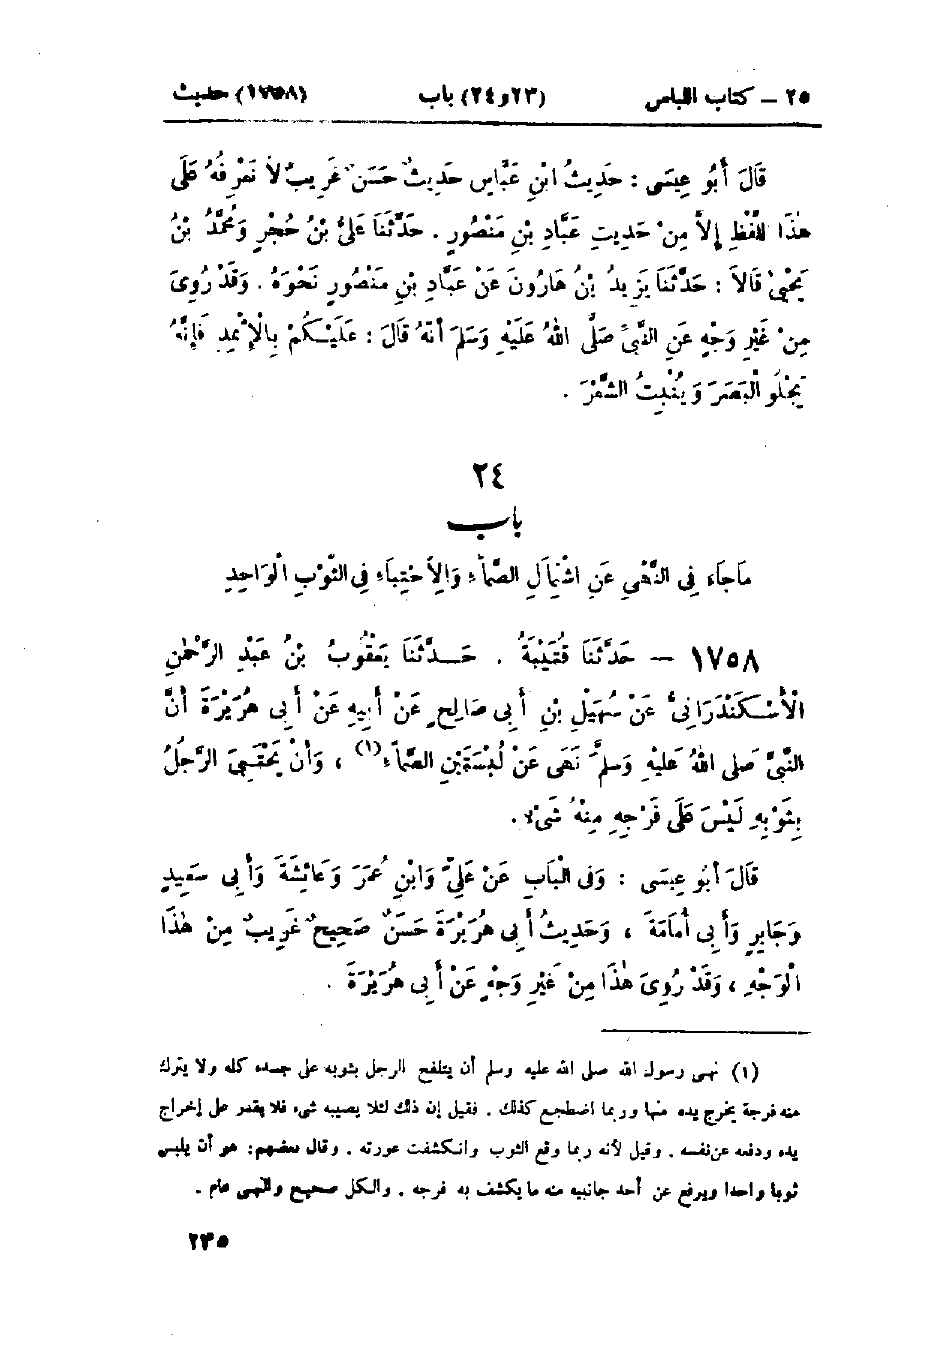 ٢٥ – كتاب اللباس (٢٣ و ٢٤) باب (١٧٥٨) حديث
قَالَ أَبُو عِيسَى : حَدِيثُ ابْنِ عَبَّاسٍ حَدِيثٌ حَسَنٌ غَرِيبٌ لاَ نَعْرِفُهُ عَلَى
هٰذَا اللَّفْظِ إِلاَّ مِنْ حَدِيثِ عَبَّادِ بْنِ مَنْصُورٍ . حَدَّثَنَا عَلِيُّ بْنُ حُجْرٍ وَمُحَمَّدُ بْنُ
يَحْيٰى قَالاَ : حَدَّثَنَا يَزِيدُ بْنُ هَارُونَ عَنْ عَبَّادِ بْنِ مَنْصُورٍ نَحْوَهُ . وَقَدْ رُوِىَ
مِنْ غَيْرِ وَجْهٍ عَنِ النَّبِىِّ صَلَّى اللهُ عَلَيْهِ وَسَلَّمَ أَنَّهُ قَالَ : عَلَيْكُمْ بِالْإِثْمِدِ فَإِنَّهُ
يَجْلُو الْبَصَرَ وَيُنْبِتُ الشَّعْرَ .
٢٤
باب
مَاجَاءَ فِى النَّهْىِ عَنِ اشْتِمَالِ الصَّمَّاءِ وَالِاحْتِبَاءِ فِى الثَّوْبِ الْوَاحِدِ
١٧٥٨ – حَدَّثَنَا قُتَيْبَةُ . حَدَّثَنَا يَعْقُوبُ بْنُ عَبْدِ الرَّحْمٰنِ
الْأَسْكَنْدَرَانِىُّ عَنْ سُهَيْلِ بْنِ أَبِى صَالِحٍ عَنْ أَبِيهِ عَنْ أَبِى هُرَيْرَةَ أَنَّ
النَّبِىَّ صَلَّى اللهُ عَلَيْهِ وَسَلَّمَ نَهَى عَنْ لُبْسَتَيْنِ الصَّمَّاءِ (١) ، وَأَنْ يَحْتَبِىَ الرَّجُلُ
بِثَوْبِهِ لَيْسَ عَلَى فَرْجِهِ مِنْهُ شَىْءٌ .
قَالَ أَبُو عِيسَى : وَفِى الْبَابِ عَنْ عَلِىٍّ وَابْنِ عُمَرَ وَعَائِشَةَ وَأَبِى سَعِيدٍ
وَجَابِرٍ وَأَبِى أُمَامَةَ ، وَحَدِيثُ أَبِى هُرَيْرَةَ حَسَنٌ صَحِيحٌ غَرِيبٌ مِنْ هٰذَا
الْوَجْهِ ، وَقَدْ رُوِىَ هٰذَا مِنْ غَيْرِ وَجْهٍ عَنْ أَبِى هُرَيْرَةَ .
(١) نهى رسول الله صلى الله عليه وسلم أن يتلفح الرجل بثوبه على جسده كله ولا يترك
منه فرجة يخرج يده منها وربما اضطجع كذلك . فقيل إن ذلك لئلا يصيبه شىء فلا يقدر على إخراج
يده ودفعه عن نفسه . وقيل لأنه ربما وقع الثوب وانكشفت عورته . وقال بعضهم : هو أن يلبس
ثوبا واحدا ويرفع عن أحد جانبيه منه ما يكشف به فرجه . والكل صحيح والنهى عام .
٢٣٥